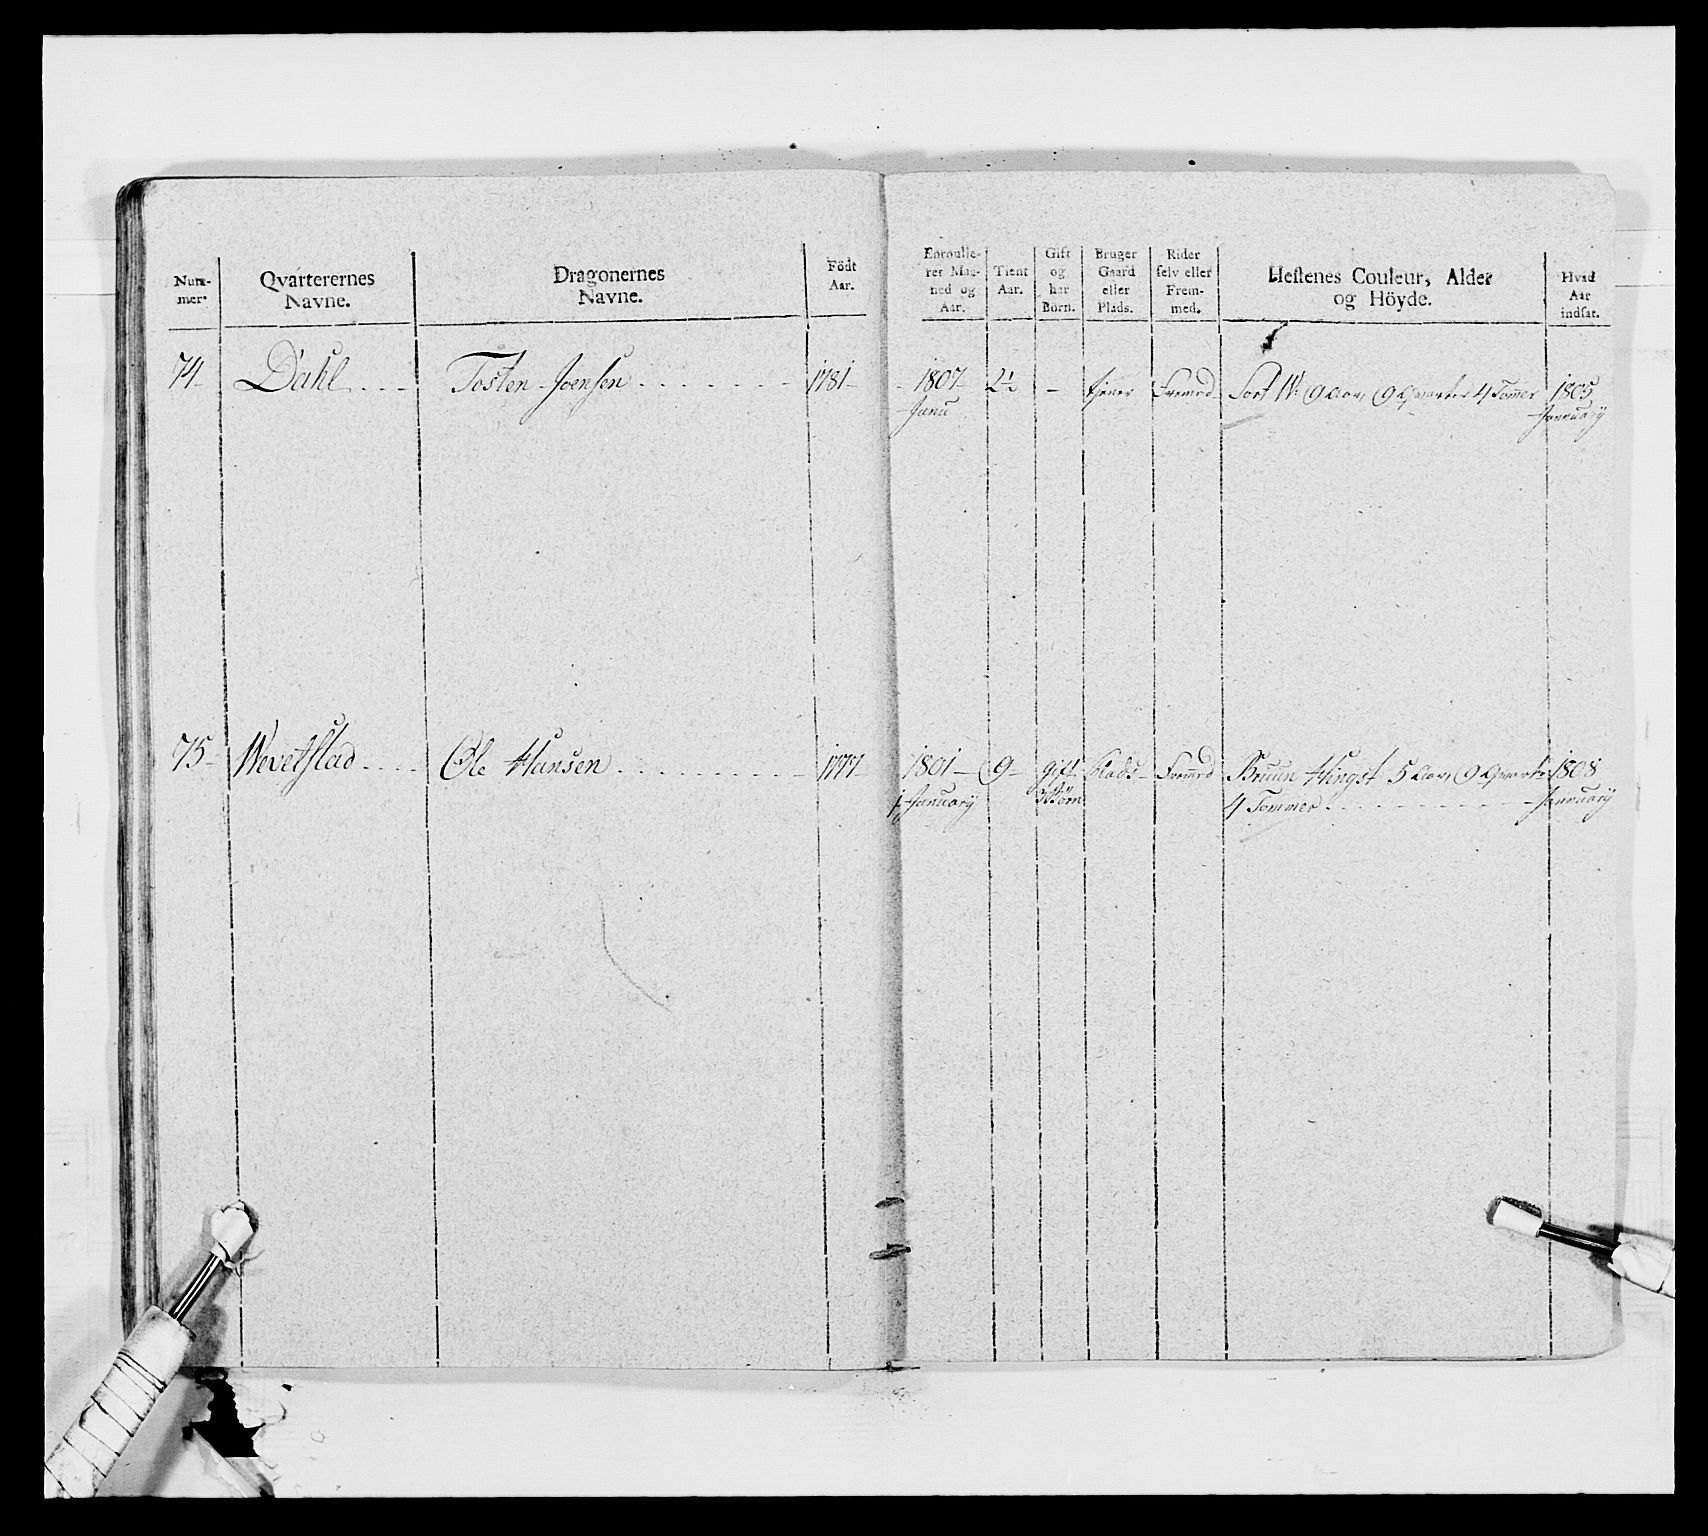 Num-
mer.
Qvarterernes
Navne.
Dragonernes
Navne.
Födt
Aar.
Enroulle-
ret Maa-
ned og
Aar.
Tient
Aar.
Gift
og
har
Börn.
Bruger
Gaard
eller
Plads.
Rider
selv eller
Frem-
med.
Hestenes Couleur, Alder
og Höyde.
Hvad
Aar
indsat.
74 Dahl Tosten Joensen 1781 1807 2½ - tjener Fremd Sort 9 Aar, 9 Qvarter 4 Tomer 1805
Janu January
75 Wevetstad Ole Hansen 1777 1801 9 gift Plads Fremd Bruun Hingst 5 Aar, 9 Qvarter 1808
January Börn 4 Tommer January